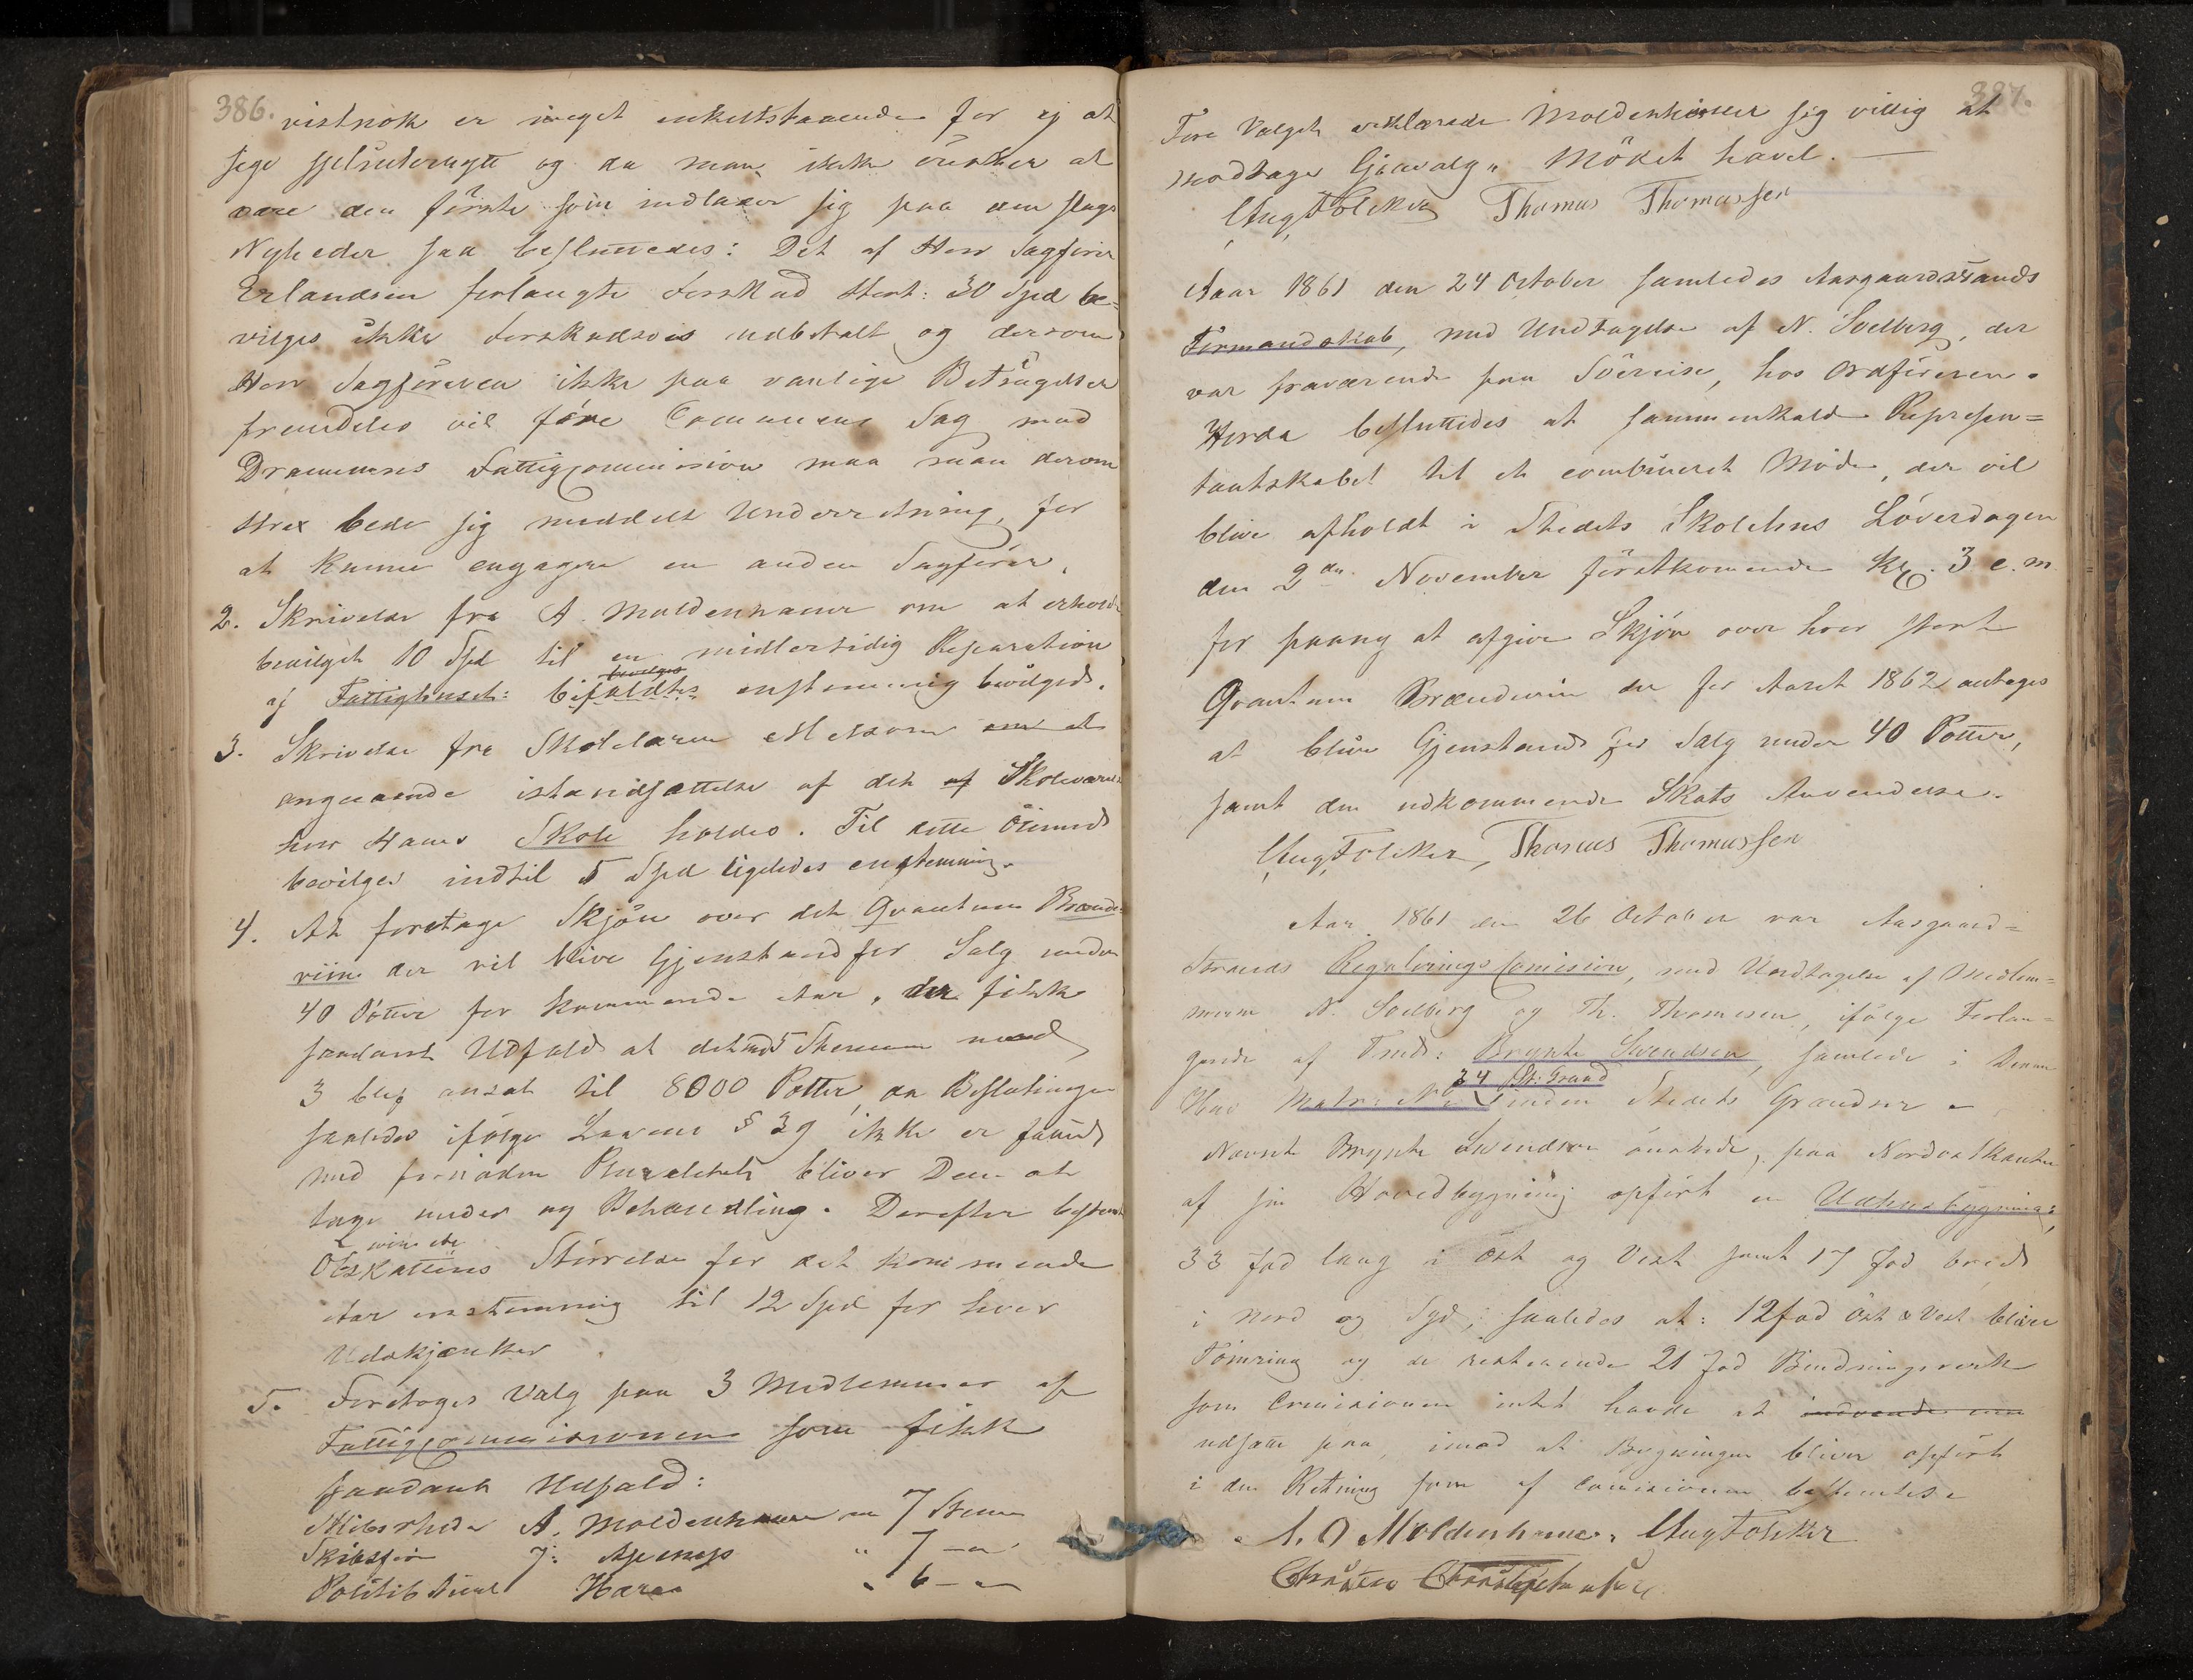 386.
vistnok er meget enkeltstaaende for ej at
sige og da man ikke önsker at
være den förste som indlader sig paa den slags
Nyheder saa besluttedes: Det af Herr Sagförer
Erlandsen forlangte Forskud stort: 30 Spd be-
vilges ikke Forskudsvis udbetalt og dersom
Herr Sagföreren ikke paa vanlige Betingelser
fremdeles vil före Communens Sag mod
Drammens Fattigcommission maa man derom
strax bede sig meddelt Underretning, for
at kunne engagere en anden Sagförer.
2. Skrivelse fra A. Moldenhauer om at erholde
bevilget 10 Spd til en midlertidig Reparation
bevilges
af Fattighuset: bifaldtes enstemmig bevilget.
3. Skrivelse fra Skolelærer om at
angaaende istandsættelse af det af Skoleværelse
hvor Hans Skole holdes. Til dette Öiemed
bevilges indtil 5 Spd ligeledes enstemmig.
4. At foretage Skjön over det Qvantum Brænde-
viin der vil blive Gjenstand for Salg under
40 Potter for kommende Aar, der fikk
saadant Udfald at det med 5 Stemmer mod
3 blev ansat til 8000 Potter, da Beslutningen
saaledes ifölge Lovens § 39 ikke er fattet
med fornöden Pluralitet bliver Den at
tage under ny Behandling. Derefter bestemt
Ölskattens Störrelse for det kommende
Aar enstemmig til 12 Spd for hver
Udskjænker
5. Foretoges Valg paa 3 Medlemmer af
Fattigcommissionen som fikk
saadant Udfald:
A. Moldenhauer 7 Stemmer
J: 7 — "
" 6 — "
387.
Före Valget erklærede Moldenhauer sig villig at
modtage Gjenvalg. Mödet hævet. —
Aug Fölcker Thomas Thomassen
Aar 1861 den 24 October samledes Aasgaardstrands
Formandskab, med Undtagelse af N. Soelberg, der
var fraværende paa Söereise, hos Ordföreren.
besluttedes at sammenkalde Represen=
tantskabet til et combineret Möde, der vil
blive afholdt i Stedets Skolehus Löverdagen
den 2den November förstkomende Kl. 3 e.m
for paany at afgive Skjön over hvor stort
Qvantum Brændeviin der for Aaret 1862 antages
at blive Gjenstand for Salg under 40 Potter,
samt den udkommende Skats Anvendelse.
Aug Fölcker, Thomas Thomassen
Aar 1861 den 26 October var Aasgaard=
strands Regulerings Comission, med Undtagelse af Medlem=
merne N. Soelberg og Th. Thomesen, ifölge Forlan=
gende af Brynte Svendsen, samlede i Dennes
34 St: Grund
Hus Matr: No inden Stedets Grændser.
Nævnte Brynte Svendsen önskede, paa Nordvestkanten
af sin Hovedbygning opfört en Udhusbygning,
33 fod lang i Öst og Vest samt 17 fod bred
i Nord og Syd, saaledes at: 12 fod Öst & Vest bliver
Tömring og de resterende 21 fod Bindningsverk
som Comisionen intet havde at indvende mo
udsætte paa, imod at Bygningen bliver opfört
i den Retning som af Comisionen bestemtes.
A. O Moldenhauer. Aug Fölcker